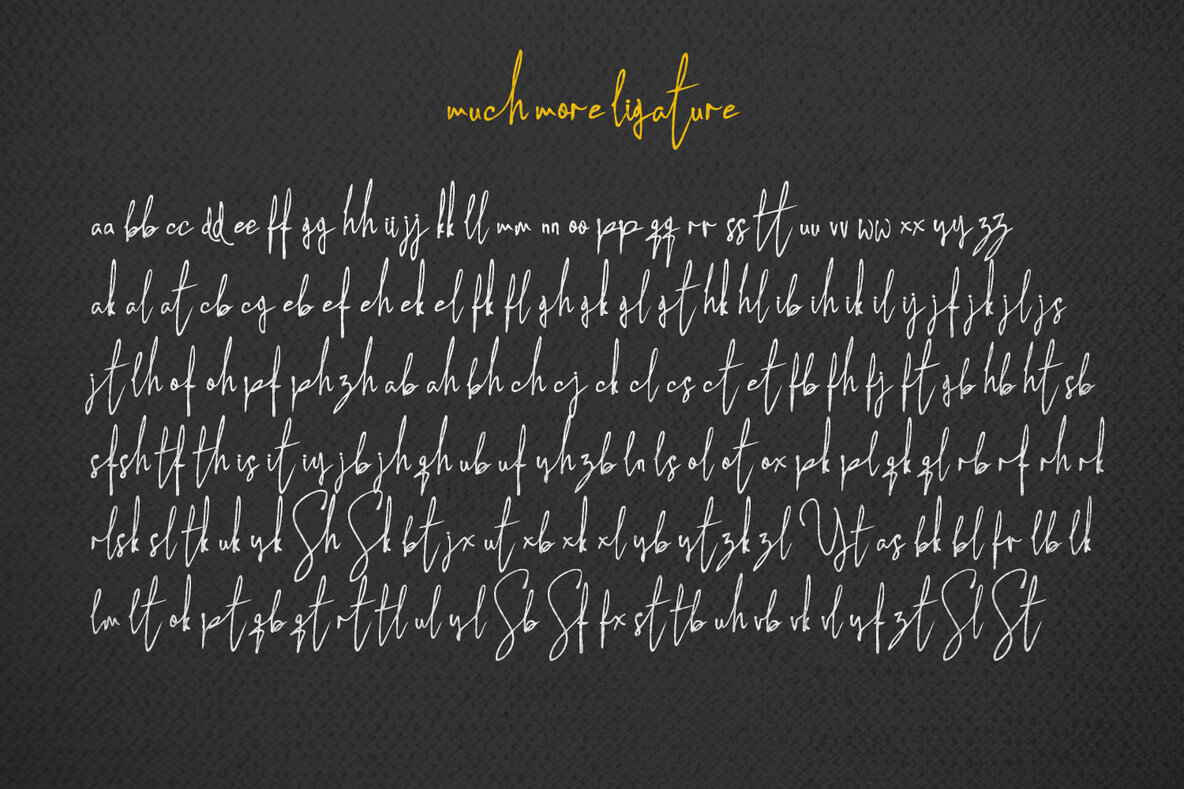 much more ligature
aa bb cc dd ee ff gg hh ii jj kk ll mm nn oo pp qq rr ss tt uu vv ww xx yy zz
ak al at cb cg eb ef eh ek el fk fl gh gk gl gt hk hl ib ih ik il ij jf jk jl js
jt lh of oh pf ph zh ab ah bh ch cj ck cl cs ct et fb fh fj ft gb hb ht sb
sf sh tf th is it iy jb jh qh ub uf yh zb ln ls ol ot ox pk pl qk ql rb rf rh rk
rl sk sl tk uk yk Sh Sk bt jx ut xb xk xl yb yt zk zl Yt as bk bl fr lb lk
lm lt ok pt qb qt rt tl ul yl Sb Sf fx st tb uh vb vk vl yf zt Sl St